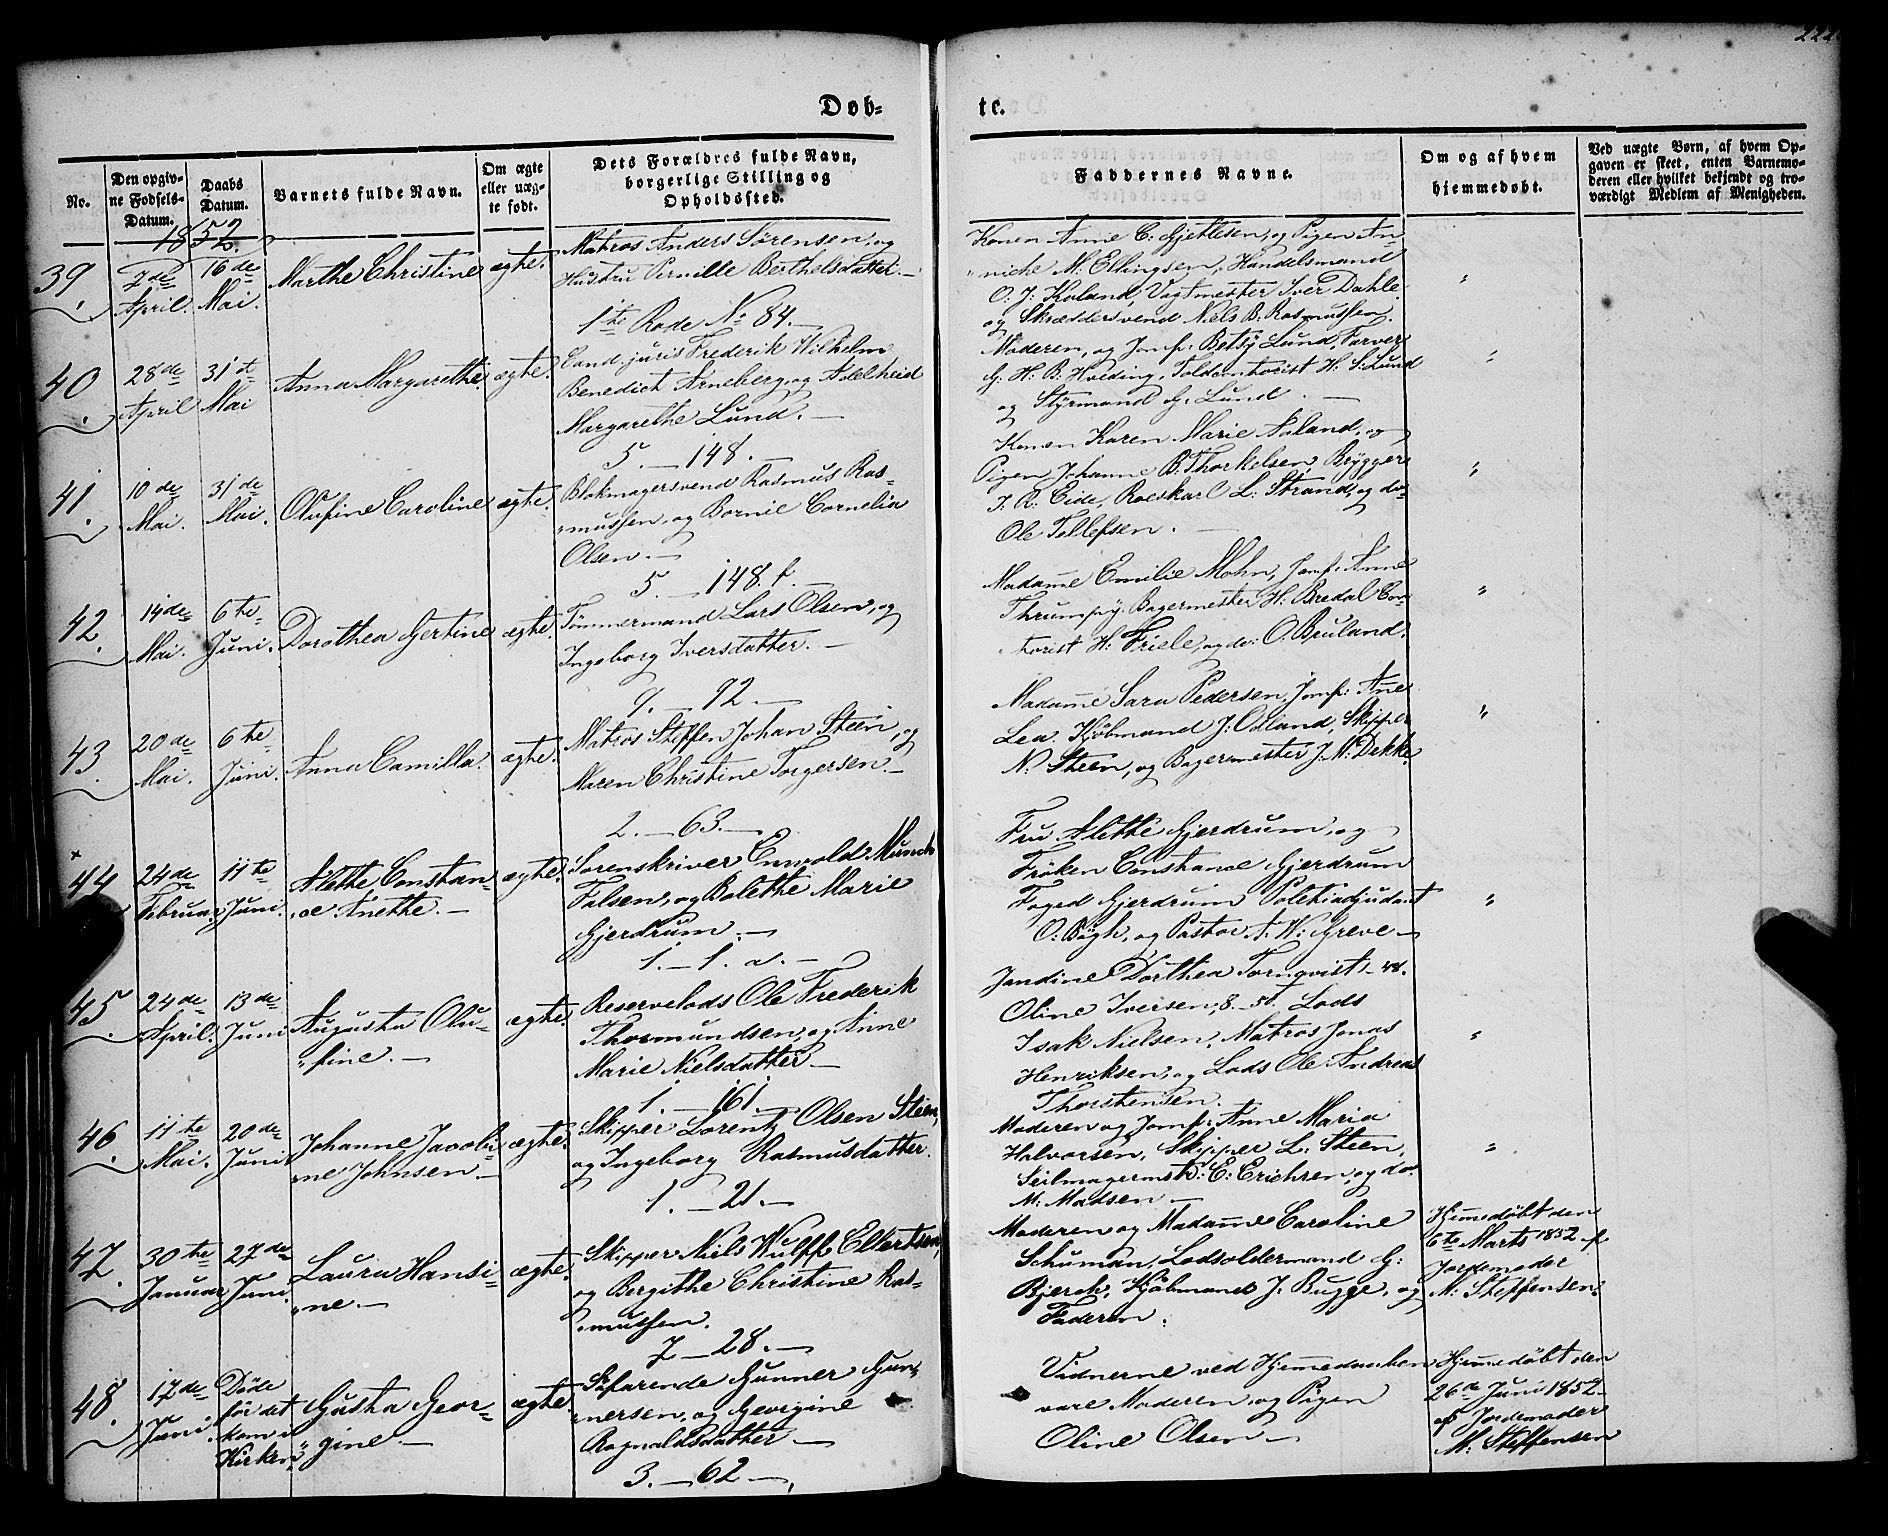 222
Døb-
te.
No.
Den opgiv-
ne Fødsels-
Datum.
Daabs
Datum.
Barnets fulde Navn.
Om ægte
eller uæg-
te født.
Dets Forældres fulde Navn,
borgerlige Stilling og
Opholdssted.
Faddernes Navne.
Om og af hvem
hjemmedøbt.
Ved uægte Børn, af hvem Op-
gaven er skeet, enten Barnemo-
deren eller hvilket bekjendt og tro-
værdigt Medlem af Menigheden.
1852.
39.
7de
April.
16de
Mai.
Marthe Christine
ægte.
Matros Anders Sørensen, og
Hustru Pernille Berthelsdatter. —
1te Rode No 84. —
Konen Anne C. Gjetlesen, og Pigen An-
niche M. Ellingsen, Handelsmand
O. J. Koland, Vagtmester Iver Dahle.
og Skræddersvend Niels B. Rasmussen.
"
40.
28de
April
31te
Mai
Anna Margarethe
ægte.
Cand. juris Frederik Wilhelm
Benedict Arneberg, og Adelheid
Margarethe Lund. —
5. — 148. —
Moderen, og Jomf: Betsy Lund, Farver
G. H. B. Hveding, Toldcontorist H. S. Lund
og Styrmand G. Lund. —
"
41.
10de
Mai.
31de
Mai.
Olufine Caroline
ægte.
Blokmagersvend Rasmus Ras-
mussen, og Bornie Cornelia
Olsen. —
5. — 148. f. —
Konen Karen Marie Aaland, og
Pigen Johanne B. Thorkelsen, Brygger
J. R. Eide, Roeskarl L. Strand, og do
Ole Tellefsen. —
"
42.
14de
Mai.
6te
Juni.
Dorothea Gjertine
ægte.
Tømmermand Lars Olsen, og
Ingeborg Iversdatter. —
9. — 92. —
Madame Emilie Mohn, Jomf: Anne
Thrumpy. Bagermester H. Bredal Con-
torist H. Friele, og do: O. Bruland.
"
43.
20de
Mai.
6te
Juni.
Anna Camilla.
ægte.
Matros Steffen Johan Steen, og
Maren Christine Torgersen. —
2. — 63. —
Madame Sara Pedersen, Jomf: Ane
Lea. Kjøbmand J. Odland, Skipper
N. Steen, og Bagermester J. M. Dekke.
"
44
24de
Februar.
11te
Juni.
Alethe Constan-
ce Anethe. —
ægte.
Sorenskriver Enevold Munch
Falsen, og Bolethe Marie
Gjerdrum. —
1. — 1. a. —
Fru Alethe Gjerdrum, og
Frøken Constance Gjerdrum
Foged Gjerdrum Politiadjudant
O. Bøgh, og Pastor A. W. Greve —
"
45.
24de
April.
13de
Juni
Augusta Olu-
fine. —
ægte.
Reservelods Ole Frederik
Thormundsen, og Anne
Marie Nielsdatter —
1. — 161. —
Jandine Dorthea Tornqvist — 48.
Oline Iversen, 8. — 51. Lods
Isak Nielsen, Matros Jonas
Henriksen, og Lods Ole Andreas
Thorstensen.
"
46.
11te
Mai.
20de
Juni
Johanne Jacobi-
ne Johnsen —
ægte.
Skipper Lorentz Olsen Steen,
og Ingeborg Rasmusdatter.
1. — 21. —
Moderen og Jomf: Anne Maria
Halvorsen, Skipper L. Steen,
Seilmagermstr: E. Erichsen, og do.
M. Madsen —
"
47.
30te
Januar
27de
Juni.
Laura Hansi-
ne. —
ægte.
Skipper Niels Wulff Ellertsen,
og Bergithe Christine Ras-
mussen.
7 — 28. —
Moderen og Madame Caroline
Schuman, Lodsoldermand G:
Bjerck, Kjøbmand J. Bugge, og
Faderen.
Hjemmedøbt den
6te Marts 1852 af
Jordemoder
M. Steffensen.
48.
17de
Juni
Døde
før det
kom i
Kirken
Gusta Geor-
gine. —
ægte
Søfarende Gunner Gun-
nersen, og Georgine
Ragnaldsdatter —
3. — 62 —
Vidnerne ved Hjemmedaaben
vare Moderen, og Pigen
Oline Olsen —
Hjemmedøbt den
26de Juni 1852
af Jordemoder
M. Steffensen